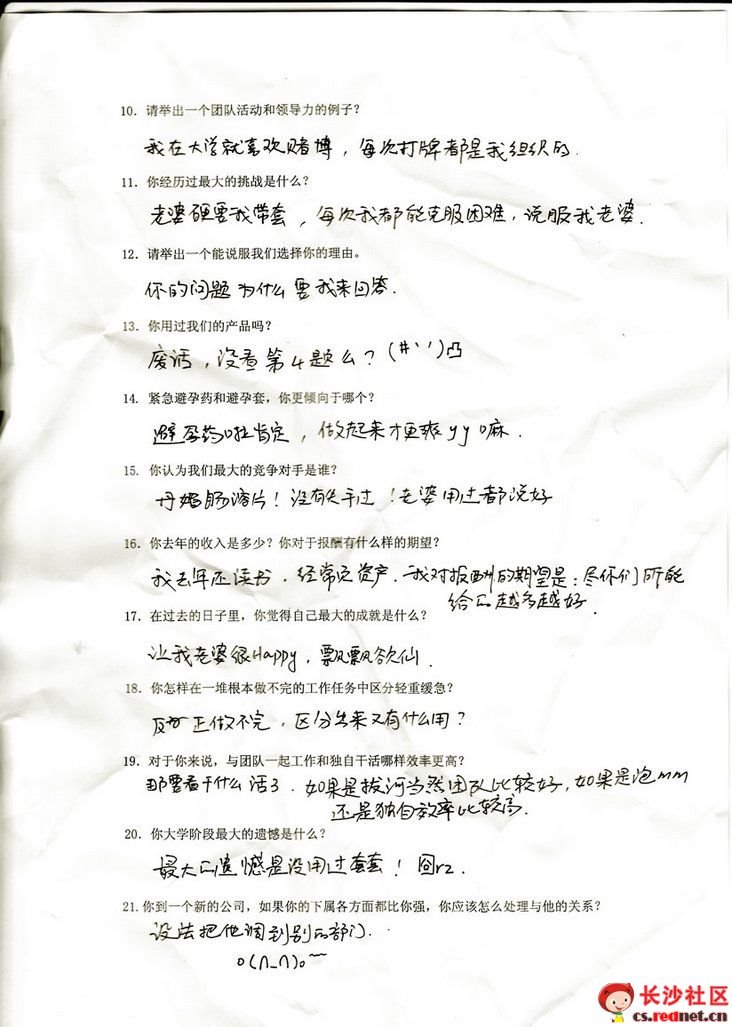 10. 请举出一个团队活动和领导力的例子？
我在大学就喜欢赌博，每次打牌都是我组织的.
11. 你经历过最大的挑战是什么？
老婆硬要我带套，每次我都能克服困难，说服我老婆.
12. 请举出一个能说服我们选择你的理由。
你的问题为什么要我来回答.
13. 你用过我们的产品吗？
废话，没看第4题么？(#｀′)凸
14. 紧急避孕药和避孕套，你更倾向于哪个？
避孕药啦肯定，做起来才更爽yy嘛.
15. 你认为我们最大的竞争对手是谁？
丹媚肠溶片！没有失手过！老婆用过都说好
16. 你去年的收入是多少？你对于报酬有什么样的期望？
我去年还读书，经常负资产.我对报酬的期望是：尽你们所能
给的越多越好.
17. 在过去的日子里，你觉得自己最大的成就是什么？
让我老婆很Happy，飘飘欲仙.
18. 你怎样在一堆根本做不完的工作任务中区分轻重缓急？
反正做不完，区分出来又有什么用？
19. 对于你来说，与团队一起工作和独自干活哪样效率更高？
那要看干什么活了.如果是拔河当然团队比较好，如果是泡mm
还是独自效率比较高.
20. 你大学阶段最大的遗憾是什么？
最大的遗憾是没用过套套！囧rz.
21. 你到一个新的公司，如果你的下属各方面都比你强，你应该怎么处理与他的关系？
设法把他调到别的部门.
o(∩_∩)o~~
长沙社区
cs.rednet.cn